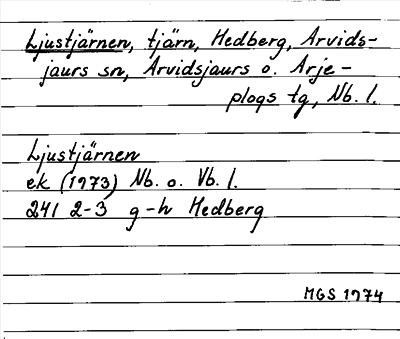 Ljustjärnen, tjärn, Hedberg, Arvids-
jaurs sn, Arvidsjaurs o. Arje-
plogs tg, Nb. l.
Ljustjärnen
ek (1973) Nb. o. Vb. l.
241 2-3 g-h Hedberg
MGS 1974